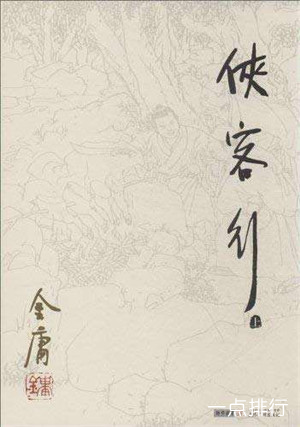 俠客行
上
金庸
一点排行